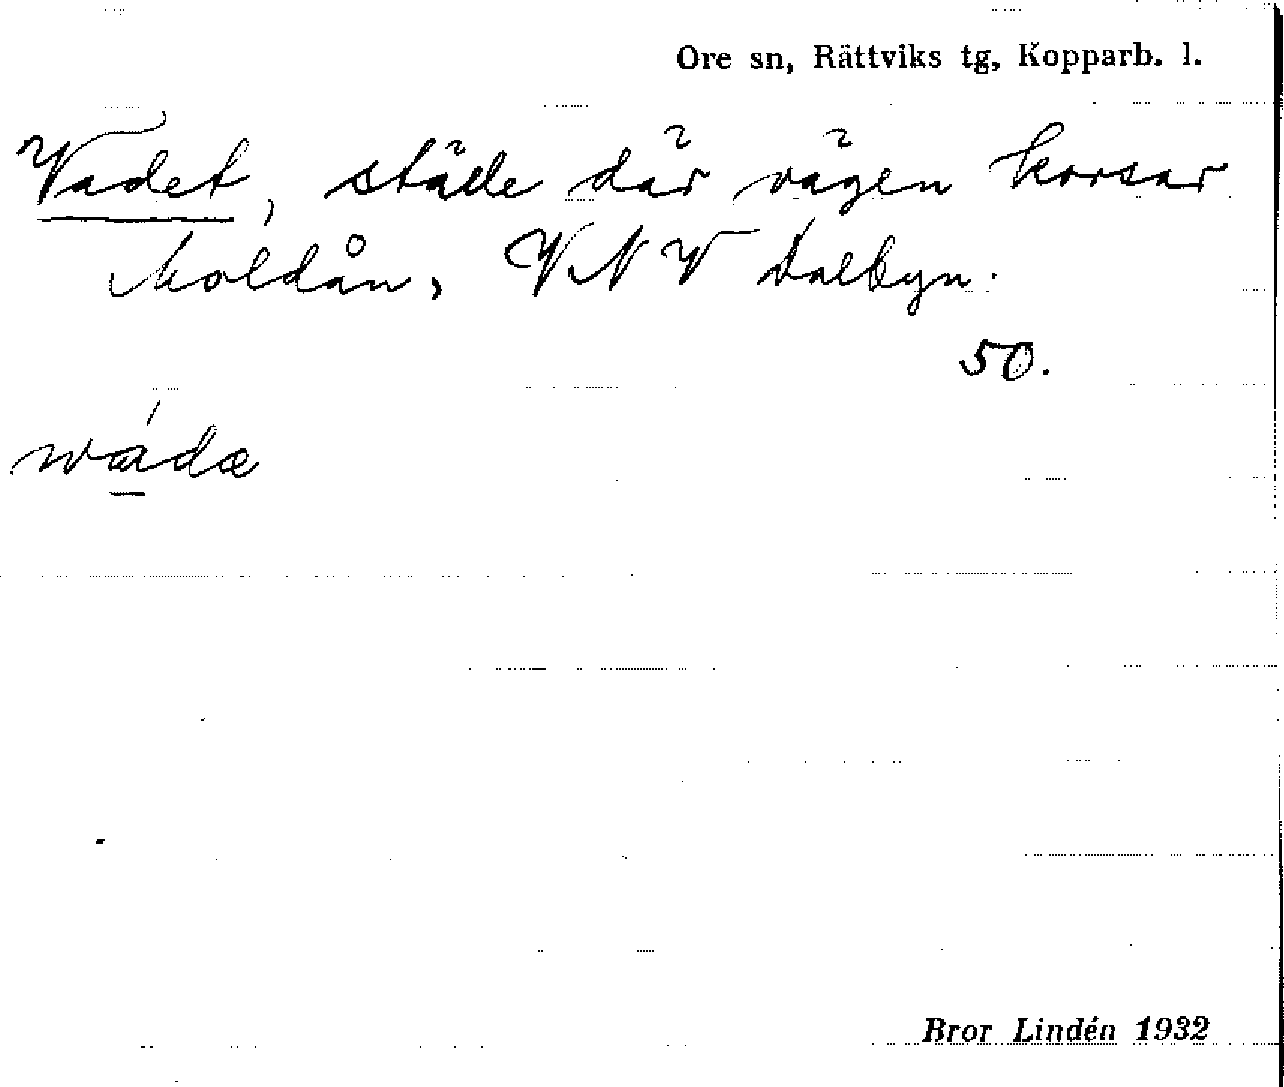 Ore sn, Rättviks tg, Kopparb. l.
Vadet, ställe där vägen korsar
Moldån, VNV Dalbyn.
50.
wádæ
Bror Lindén 1932